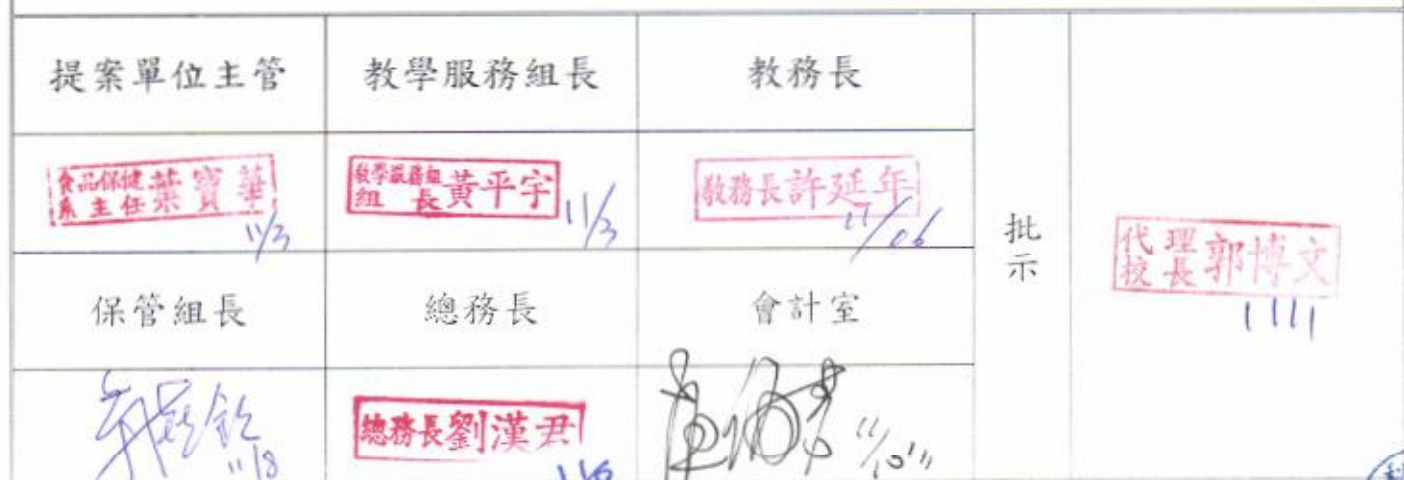 提案單位主管
教學服務組長
教務長
食品保健
系主任 葉寶華
11/3
教學服務組
組長 黃平宇
11/3
教務長許延年
11/06
批示
代理
校長 郭博文
1111
保管組長
總務長
會計室
11/8
總務長劉漢君
11/10